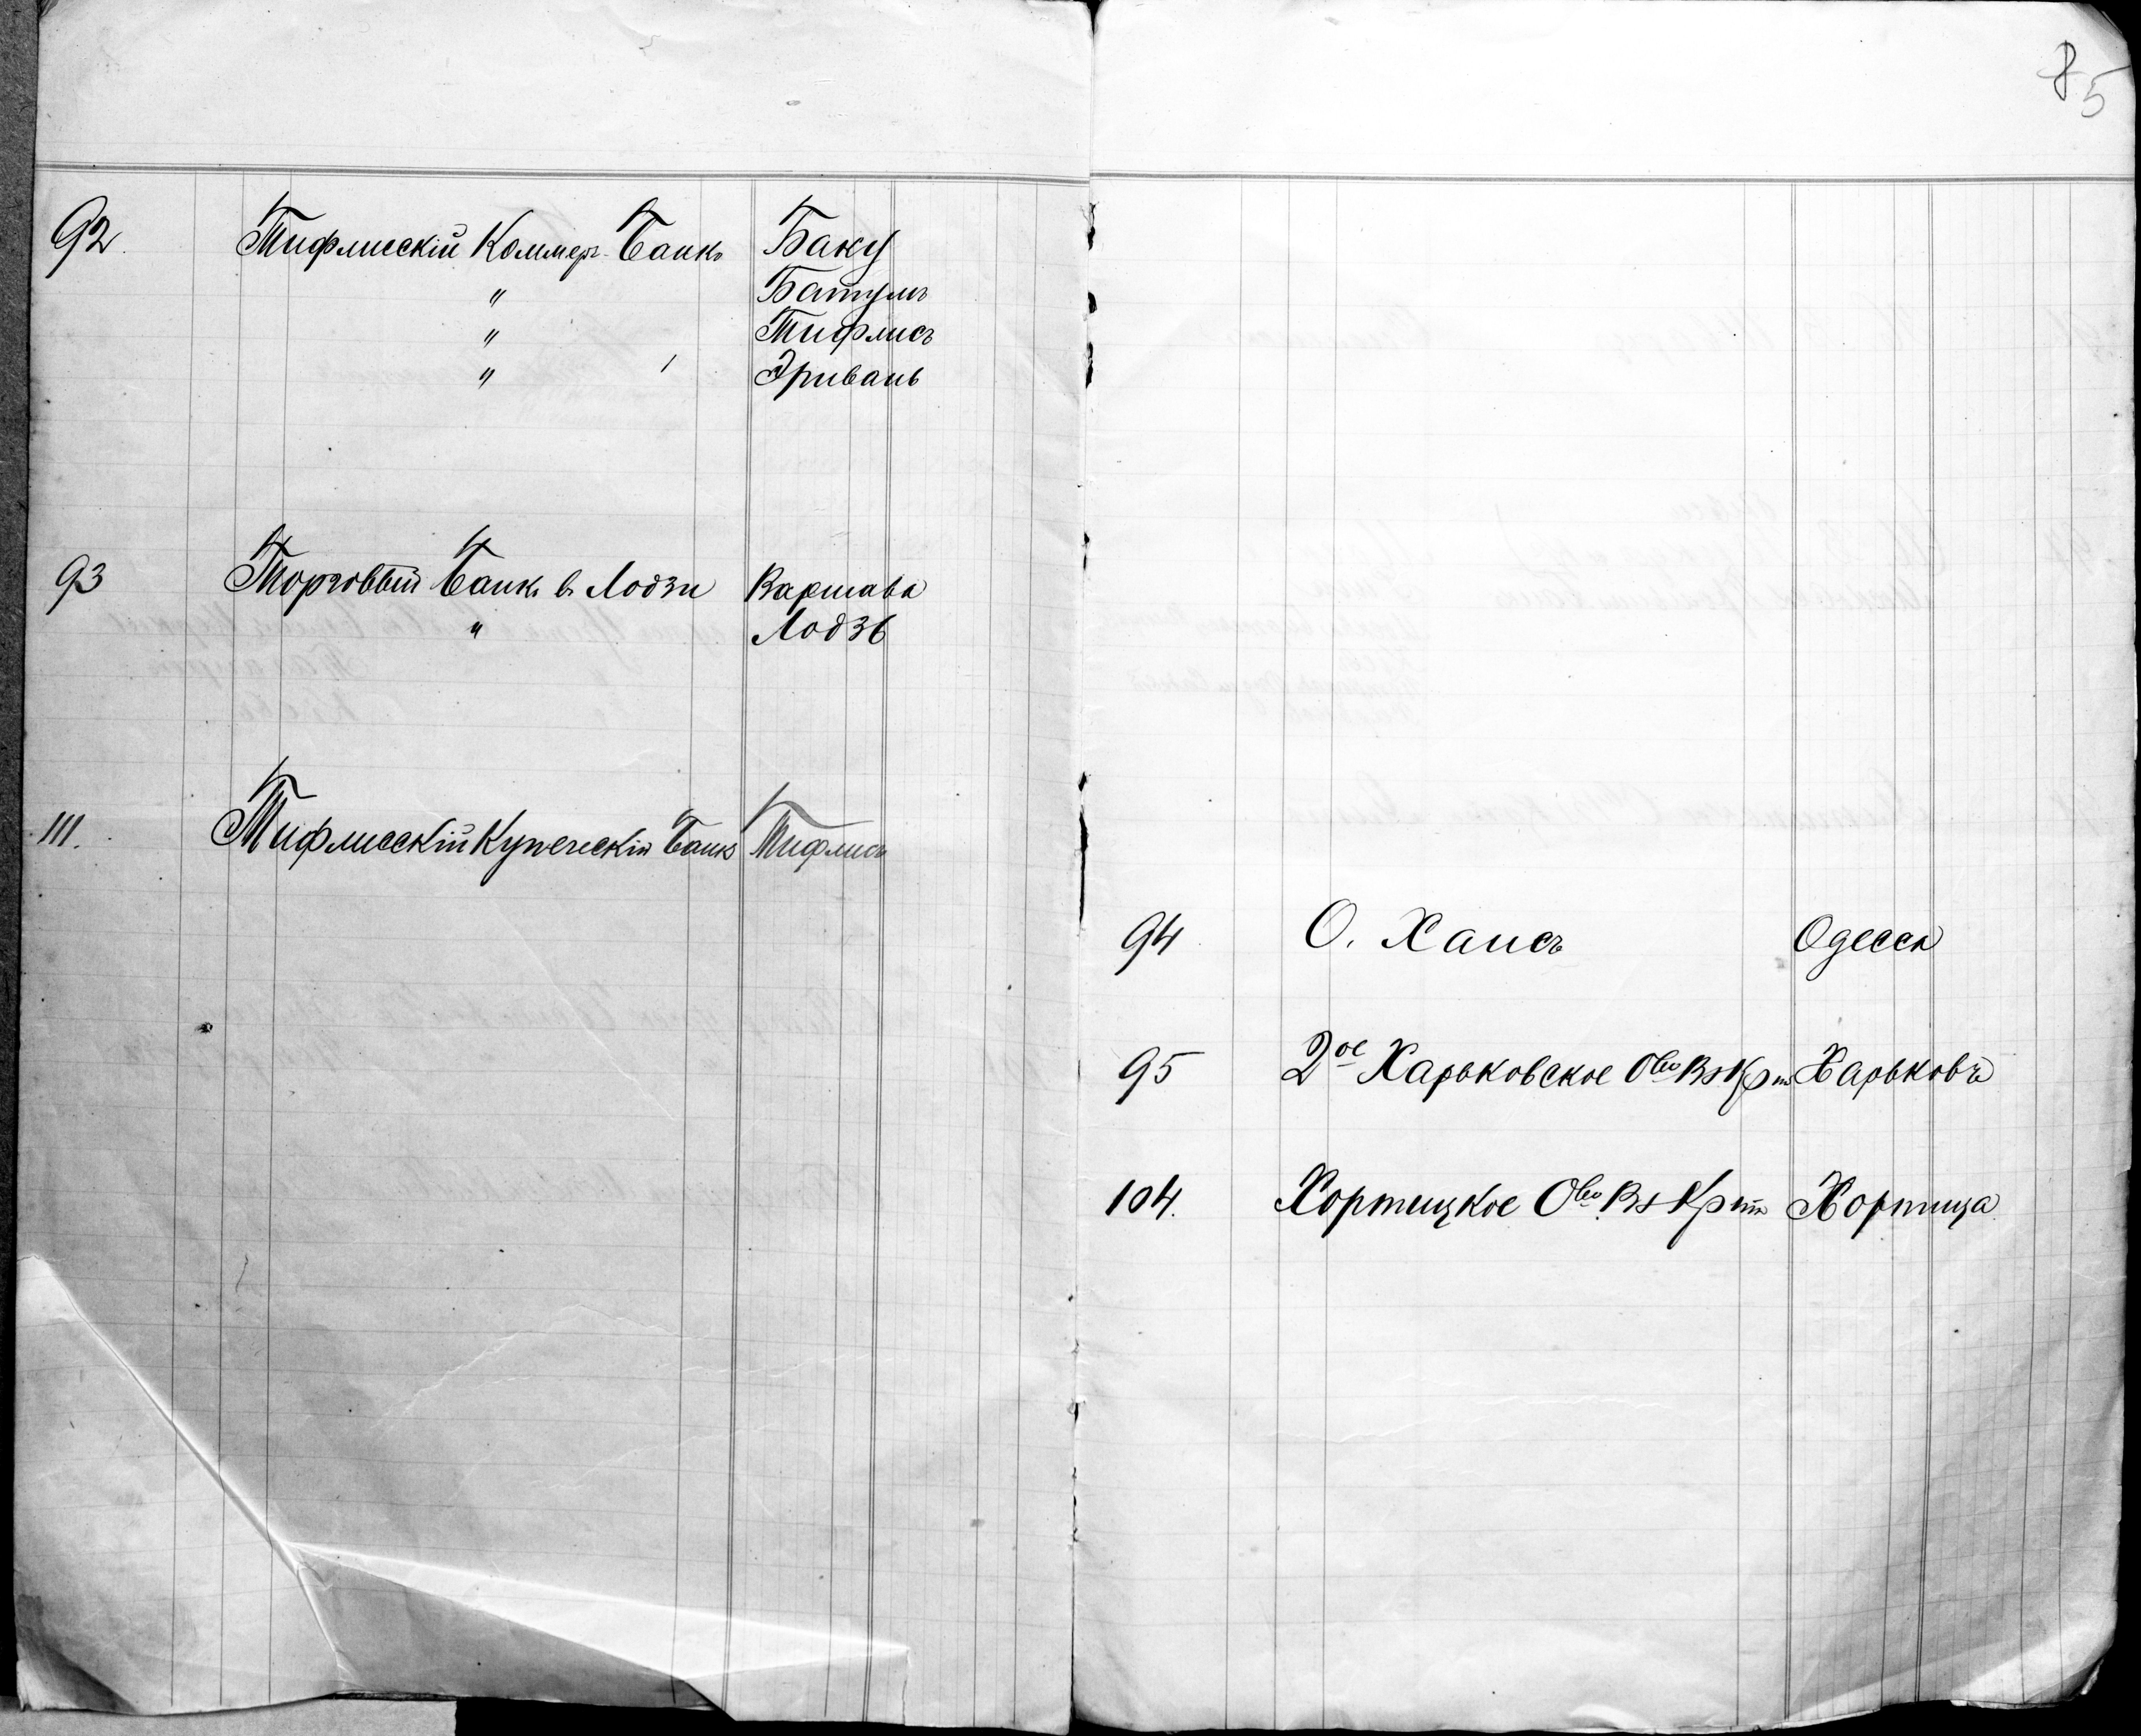 92. Тифлисскій Коммерч. Банкъ Баку
" Батумъ
" Тифлисъ
" Эривань
93 Торговый Банкъ въ Лодзи Варшава
" Лодзь
111. Тифлисскій Купеческій Банкъ Тифлисъ
85
94 О. Хаисъ Одесса
95 2ое Харьковское Обво Вз Крта Харьковъ
104. Хортицкое Обво Вз Крта Хортица